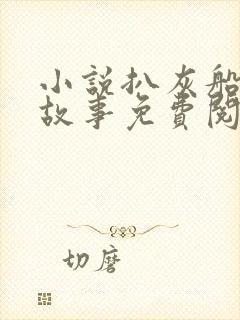 小說扒灰船
故事免費閱
切磨